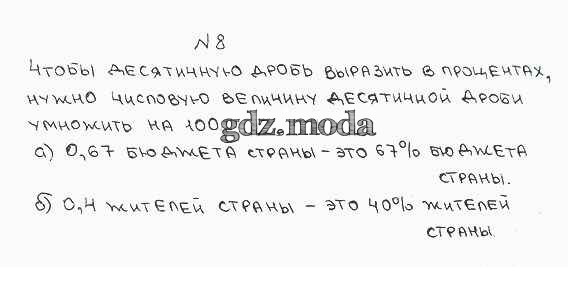 N 8
Чтобы десятичную дробь выразить в процентах,
нужно числовую величину десятичной дроби
умножить на 100 gdz.moda
а) 0,67 бюджета страны – это 67% бюджета
страны.
б) 0,4 жителей страны – это 40% жителей
страны.